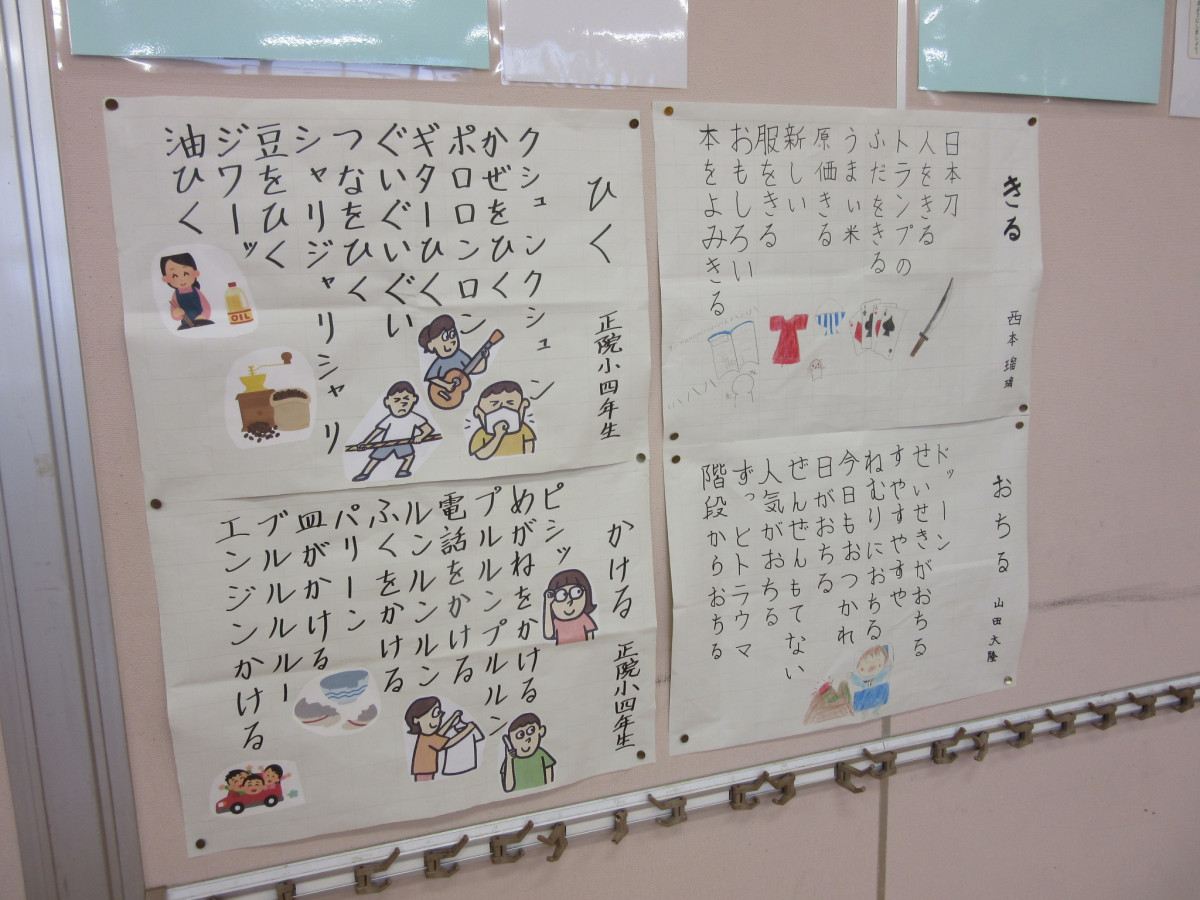 きる
西本 瑠瑋
日本刀
人をきる
トランプの
ふだをきる
うまい米
原価きる
新しい
服をきる
おもしろい
本をよみきる
ひく
正院小四年生
クシュンクシュン
かぜをひく
ポロロンロン
ギターひく
ぐいぐいぐい
つなをひく
シャリジャリシャリ
豆をひく
ジワーッ
油ひく
OIL
おちる
山田大隆
ドッーン
せいせきがおちる
すやすやすや
ねむりにおちる
今日もおつかれ
日がおちる
ぜんぜんもてない
人気がおちる
ずっとトラウマ
階段からおちる
かける
正院小四年生
ピシッ
めがねをかける
プルルンプルルン
電話をかける
ルンルンルンルン
ふくをかける
パリーン
皿がかける
ブルルルルー
エンジンかける